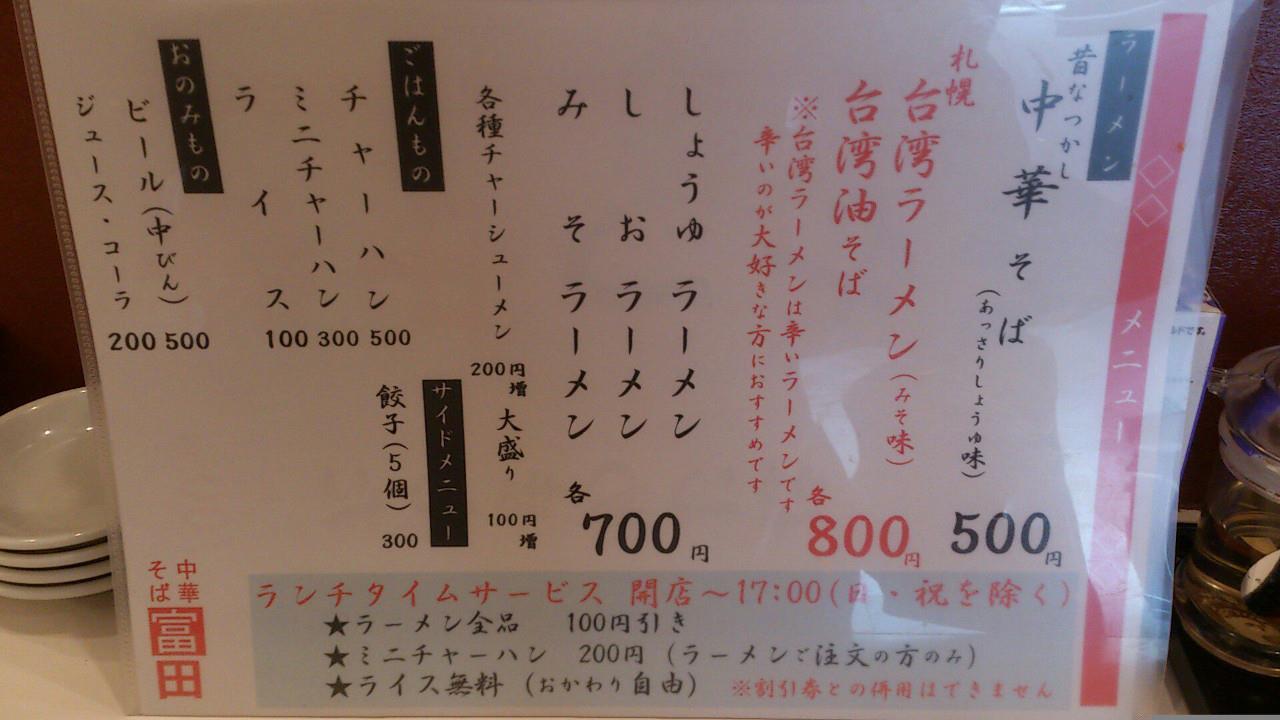 ◇◇メニュー
ラーメン
昔なつかし
中華そば
(あっさりしょうゆ味)
500円
札幌
台湾ラーメン(みそ味)
台湾油そば
各
800円
※台湾ラーメンは辛いラーメンです
辛いのが大好きな方におすすめです
しょうゆラーメン
しおラーメン
みそラーメン
各
700円
各種チャーシューメン
200円増
大盛り
100円増
ごはんもの
チャーハン 500
ミニチャーハン 300
ライス 100
サイドメニュー
餃子(5個) 300
おのみもの
ビール(中びん) 500
ジュース・コーラ 200
ランチタイムサービス 開店〜17:00(日・祝を除く)
★ラーメン全品 100円引き
★ミニチャーハン 200円 (ラーメンご注文の方のみ)
★ライス無料 (おかわり自由) ※割引券との併用はできません
中華そば
富田